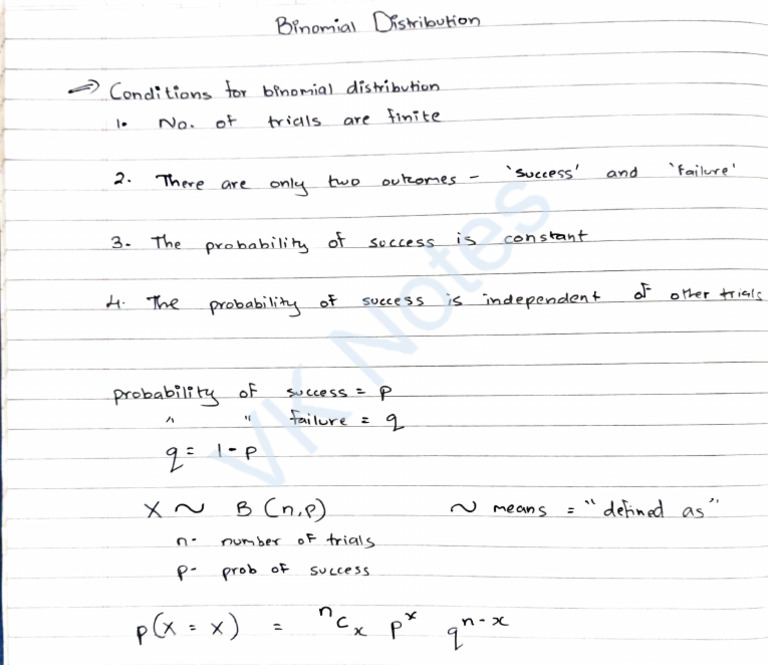 Binomial Distribution
⇒ Conditions for binomial distribution
1. No. of trials are finite
2. There are only two outcomes - 'success' and 'failure'
3. The probability of success is constant
4. The probability of success is independent of other trials
probability of success = p
" " failure = q
q = 1 - p
X ~ B (n,p) ~ means = "defined as"
n - number of trials
p - prob of success
p(X = x) = ⁿCₓ pˣ qⁿ⁻ˣ
VK Notes